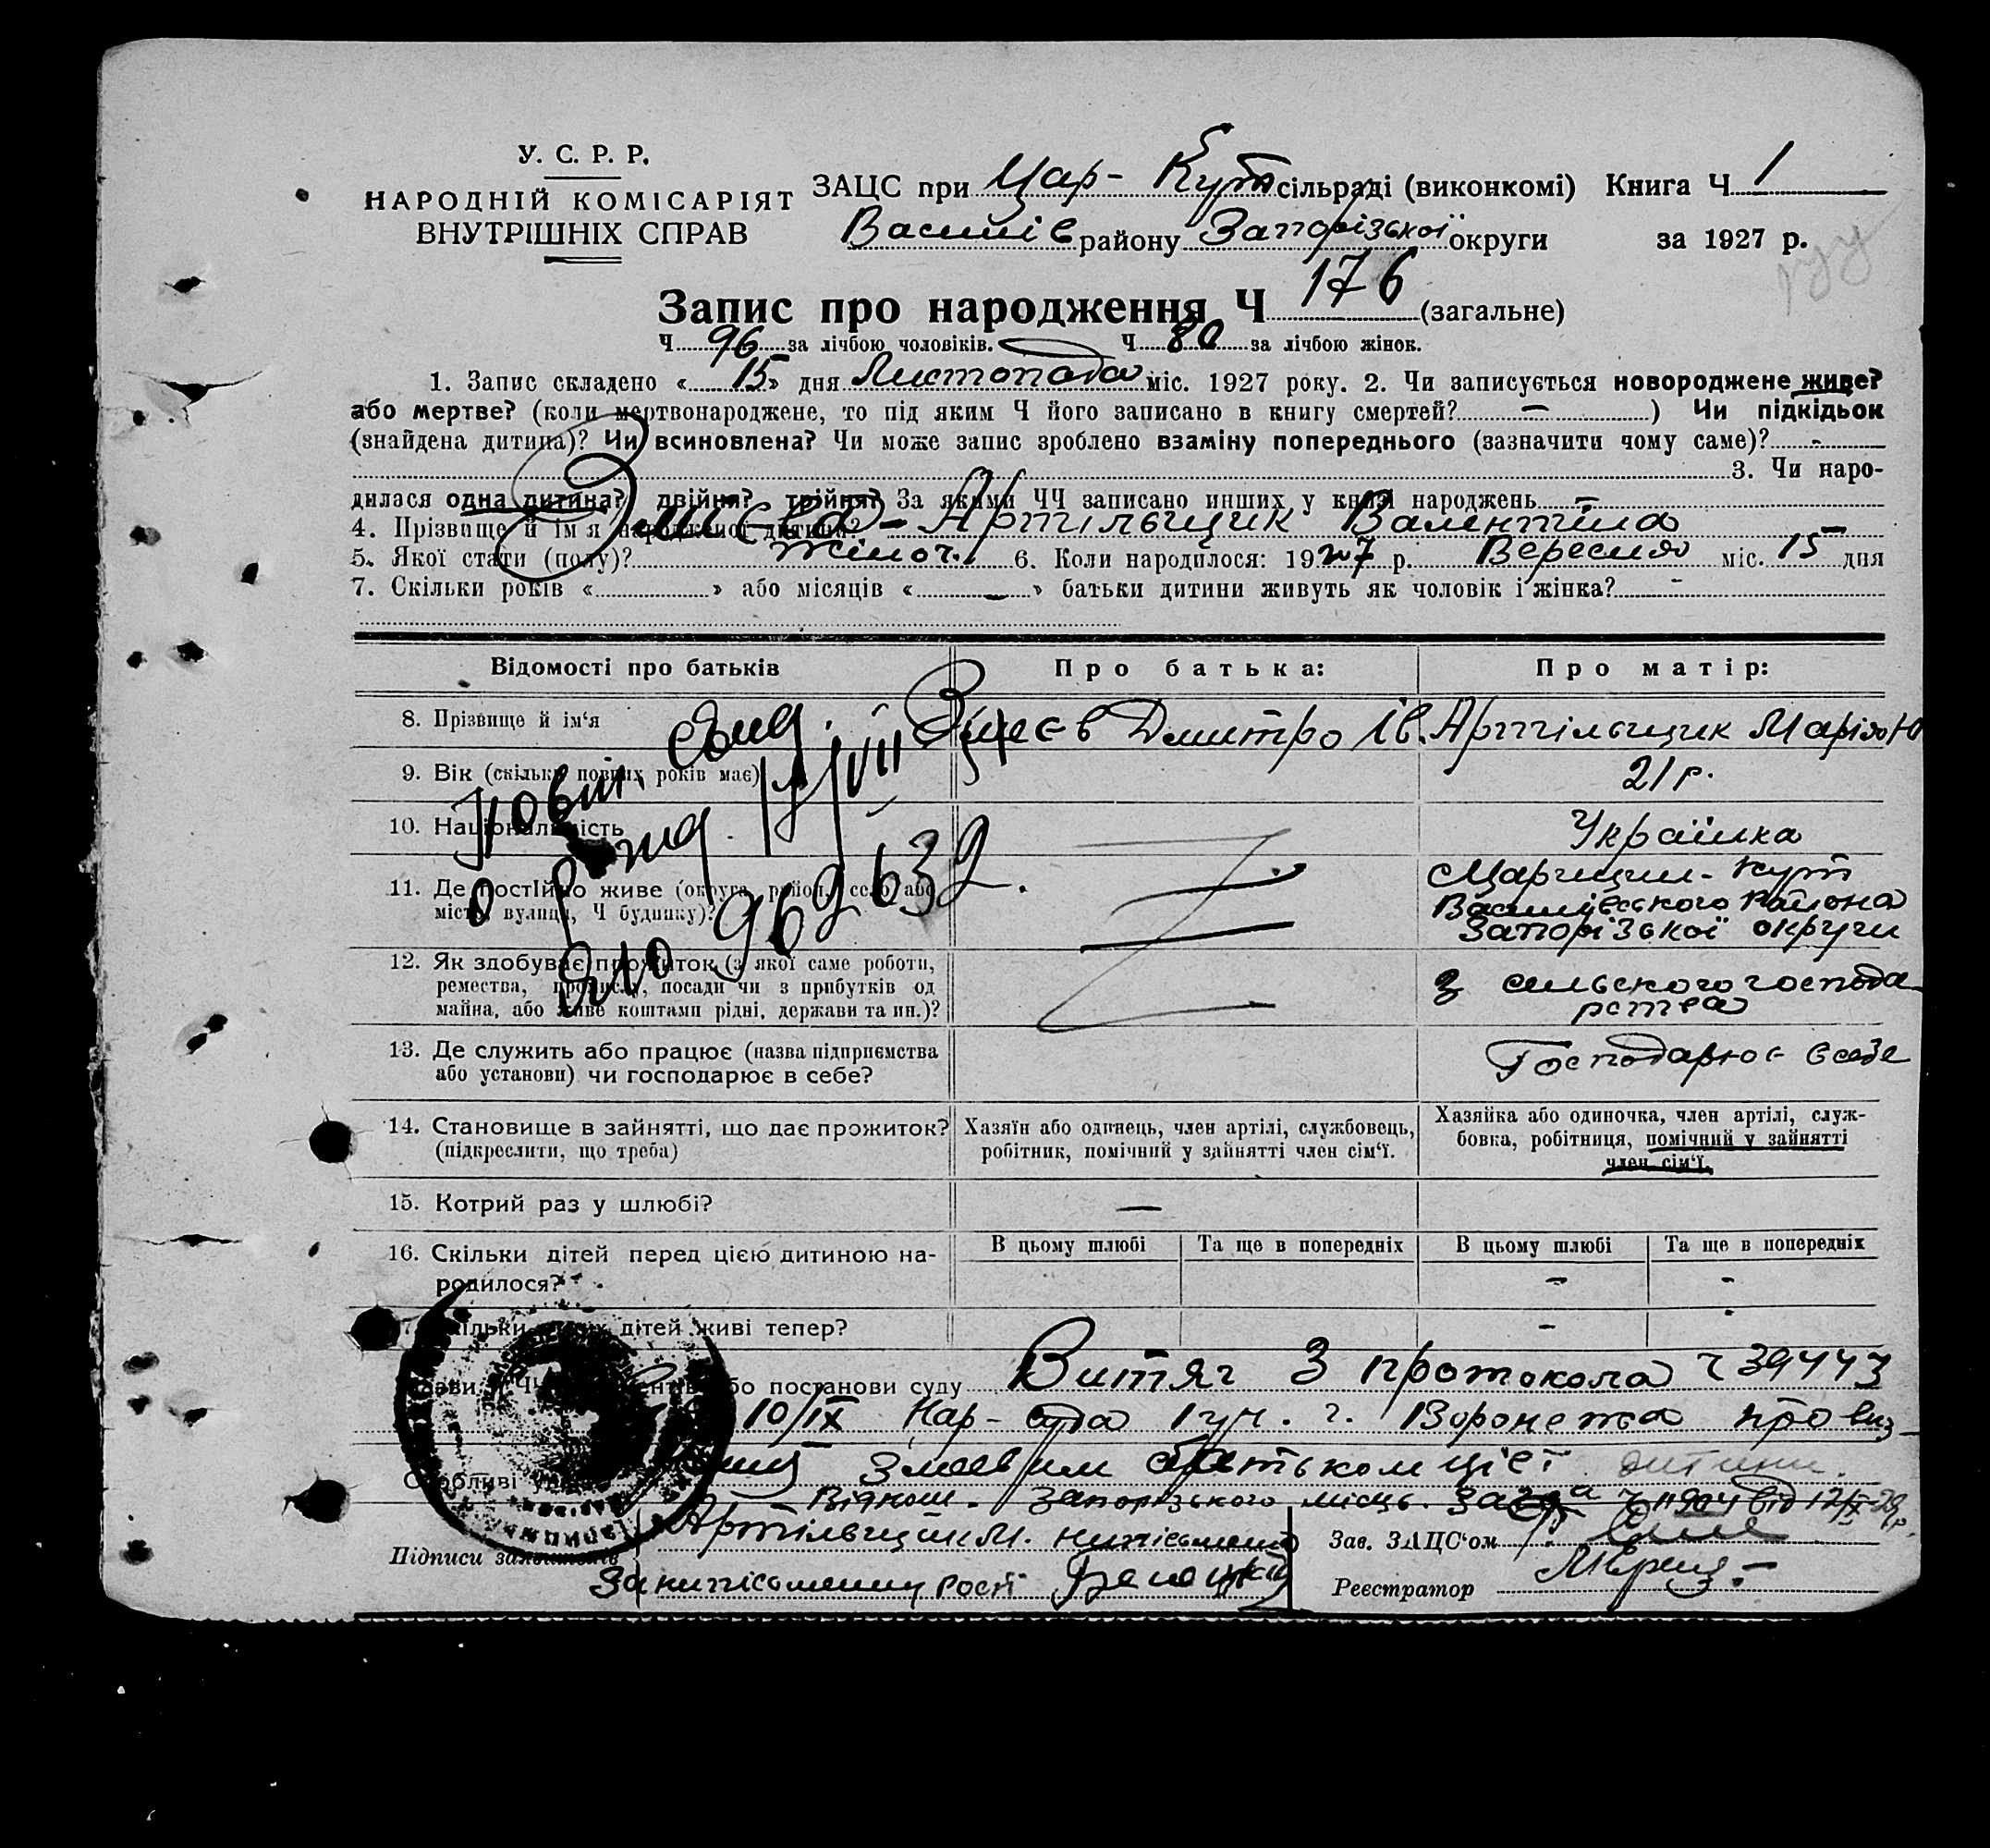 У. С. Р. Р.
НАРОДНІЙ КОМІСАРІЯТ
ВНУТРІШНІХ СПРАВ
ЗАЦС при Цар- Кут сільраді (виконкомі) Книга Ч 1
Василів району Запорізької округи за 1927 р.
Запис про народження Ч 176 (загальне)
Ч 96 за лічбою чоловіків. Ч 80 за лічбою жінок.
1. Запис складено « 15 » дня Листопада міс. 1927 року. 2. Чи записується новороджене живе?
або мертве? (коли мертвонароджене, то під яким Ч його записано в книгу смертей? — ) Чи підкідьок
(знайдена дитина)? Чи всиновлена? Чи може запис зроблено взаміну попереднього (зазначити чому саме)? -
3. Чи наро-
дилася одна дитина? двійня? трійня? За якими ЧЧ записано инших у книзі народжень —
4. Прізвище й ім'я народженої дитини? Змієва - Артільщик Валентина
5. Якої стати (полу)? жіноч. 6. Коли народилося: 1927 р. Вересня міс. 15 дня
7. Скільки років « » або місяців « — » батьки дитини живуть як чоловік і жінка? -
Відомості про батьків Про батька: Про матір:
8. Прізвище й ім'я Змієв Дмитро Ів. Артільщик Марія Ю
9. Вік (скільки повних років має) 21 р.
10. Національність Українка
11. Де постійно живе (округа, район, село або
місто, вулиця, Ч будинку)? Царицин-Кут
Василівського Района
Запорізької округи
Повт. свид.
о рожд. VIII
ЯЮ 969632.
12. Як здобуває прожиток (з якої саме роботи,
ремества, промислу, посади чи з прибутків од
майна, або живе коштами рідні, держави та ин.)? З сільского господа
рства
13. Де служить або працює (назва підприємства
або установи) чи господарює в себе? Господарює в себе
14. Становище в зайнятті, що дає прожиток?
(підкреслити, що треба)
Хазяїн або одинець, член артілі, службовець,
робітник, помічний у зайнятті член сім'ї.
Хазяйка або одиночка, член артілі, служ-
бовка, робітниця, помічний у зайнятті
член сім'ї.
15. Котрий раз у шлюбі? —
16. Скільки дітей перед цією дитиною на-
родилося?
В цьому шлюбі Та ще в попередніх В цьому шлюбі Та ще в попередніх
- -
дітей живі тепер? - -
або постанови суду Витяг з протокола Ч 39443
10/IX Нар- суда 1 уч. г. Воронежа про виз
Змієвим батьком цієї дитини.
Особливі Віднош. Запорізького місць. Загса від 12/IX-29р.
Підписи Артільщик М. нипісьменна
За нипісьменну росп
Зав. ЗАЦС'ом
Реєстратор